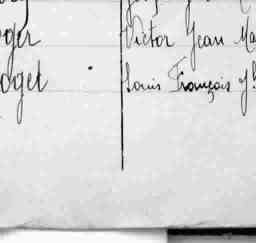 oger Victor Jean Ma
oget Louis François J